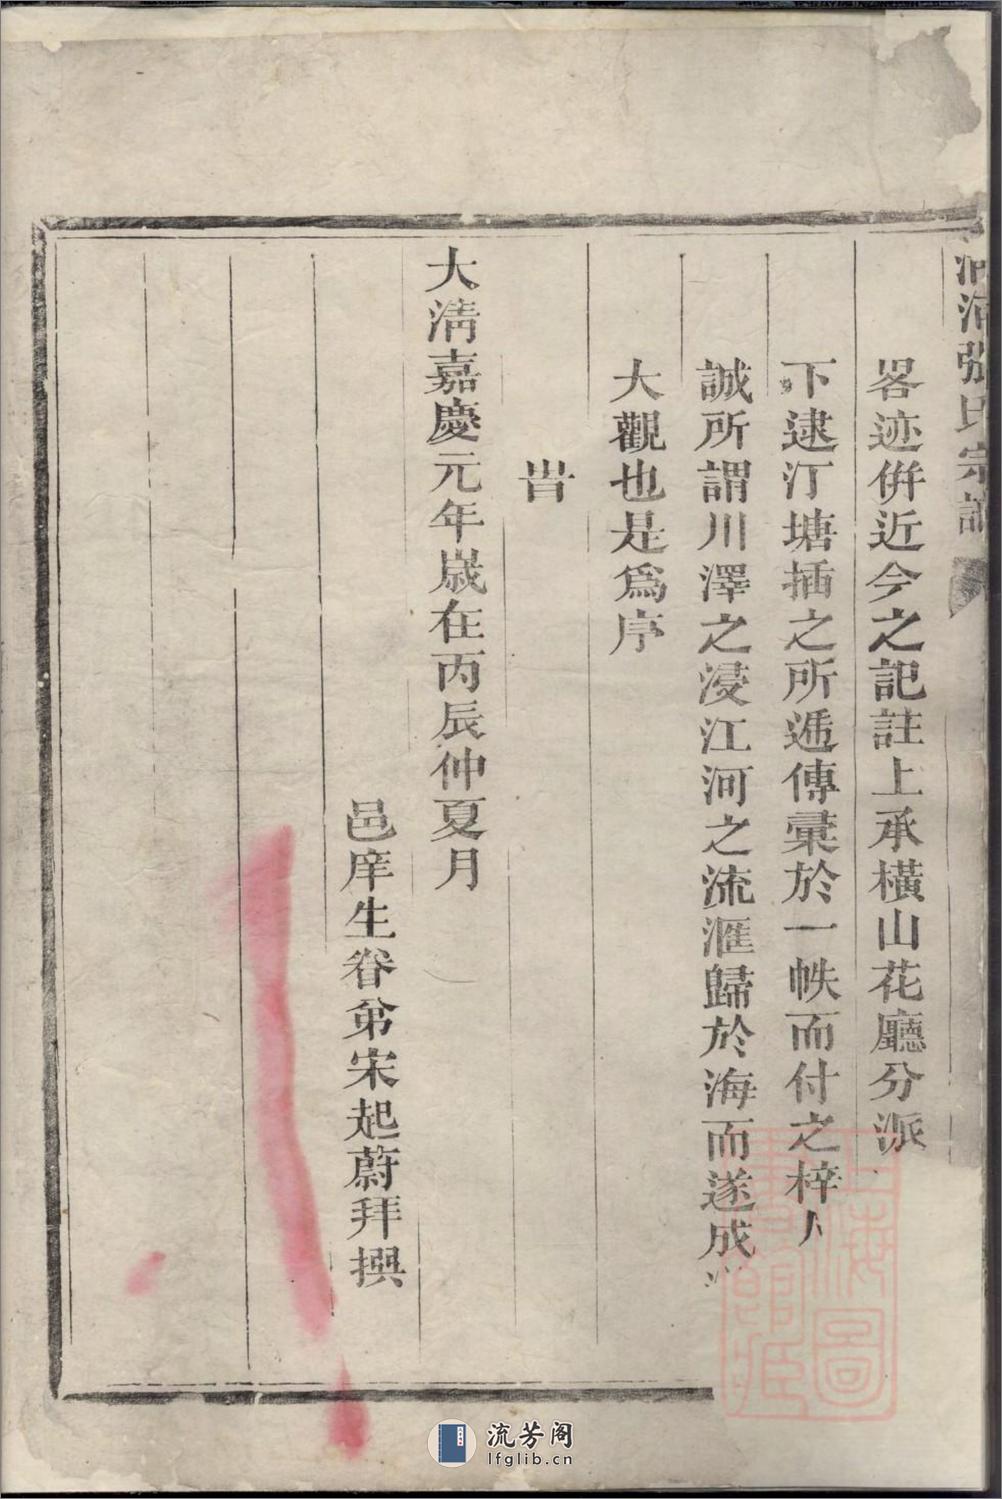 張氏宗譜
畧迹併近今之記註上承橫山花廳分派
下逮汀塘插之所遞傳彙於一帙而付之梓人
誠所謂川澤之浸江河之流滙歸於海而遂成
大觀也是爲序
旹
大清嘉慶元年歲在丙辰仲夏月
邑庠生眷弟宋起蔚拜撰
上海圖書館藏
流芳阁
lfglib.cn